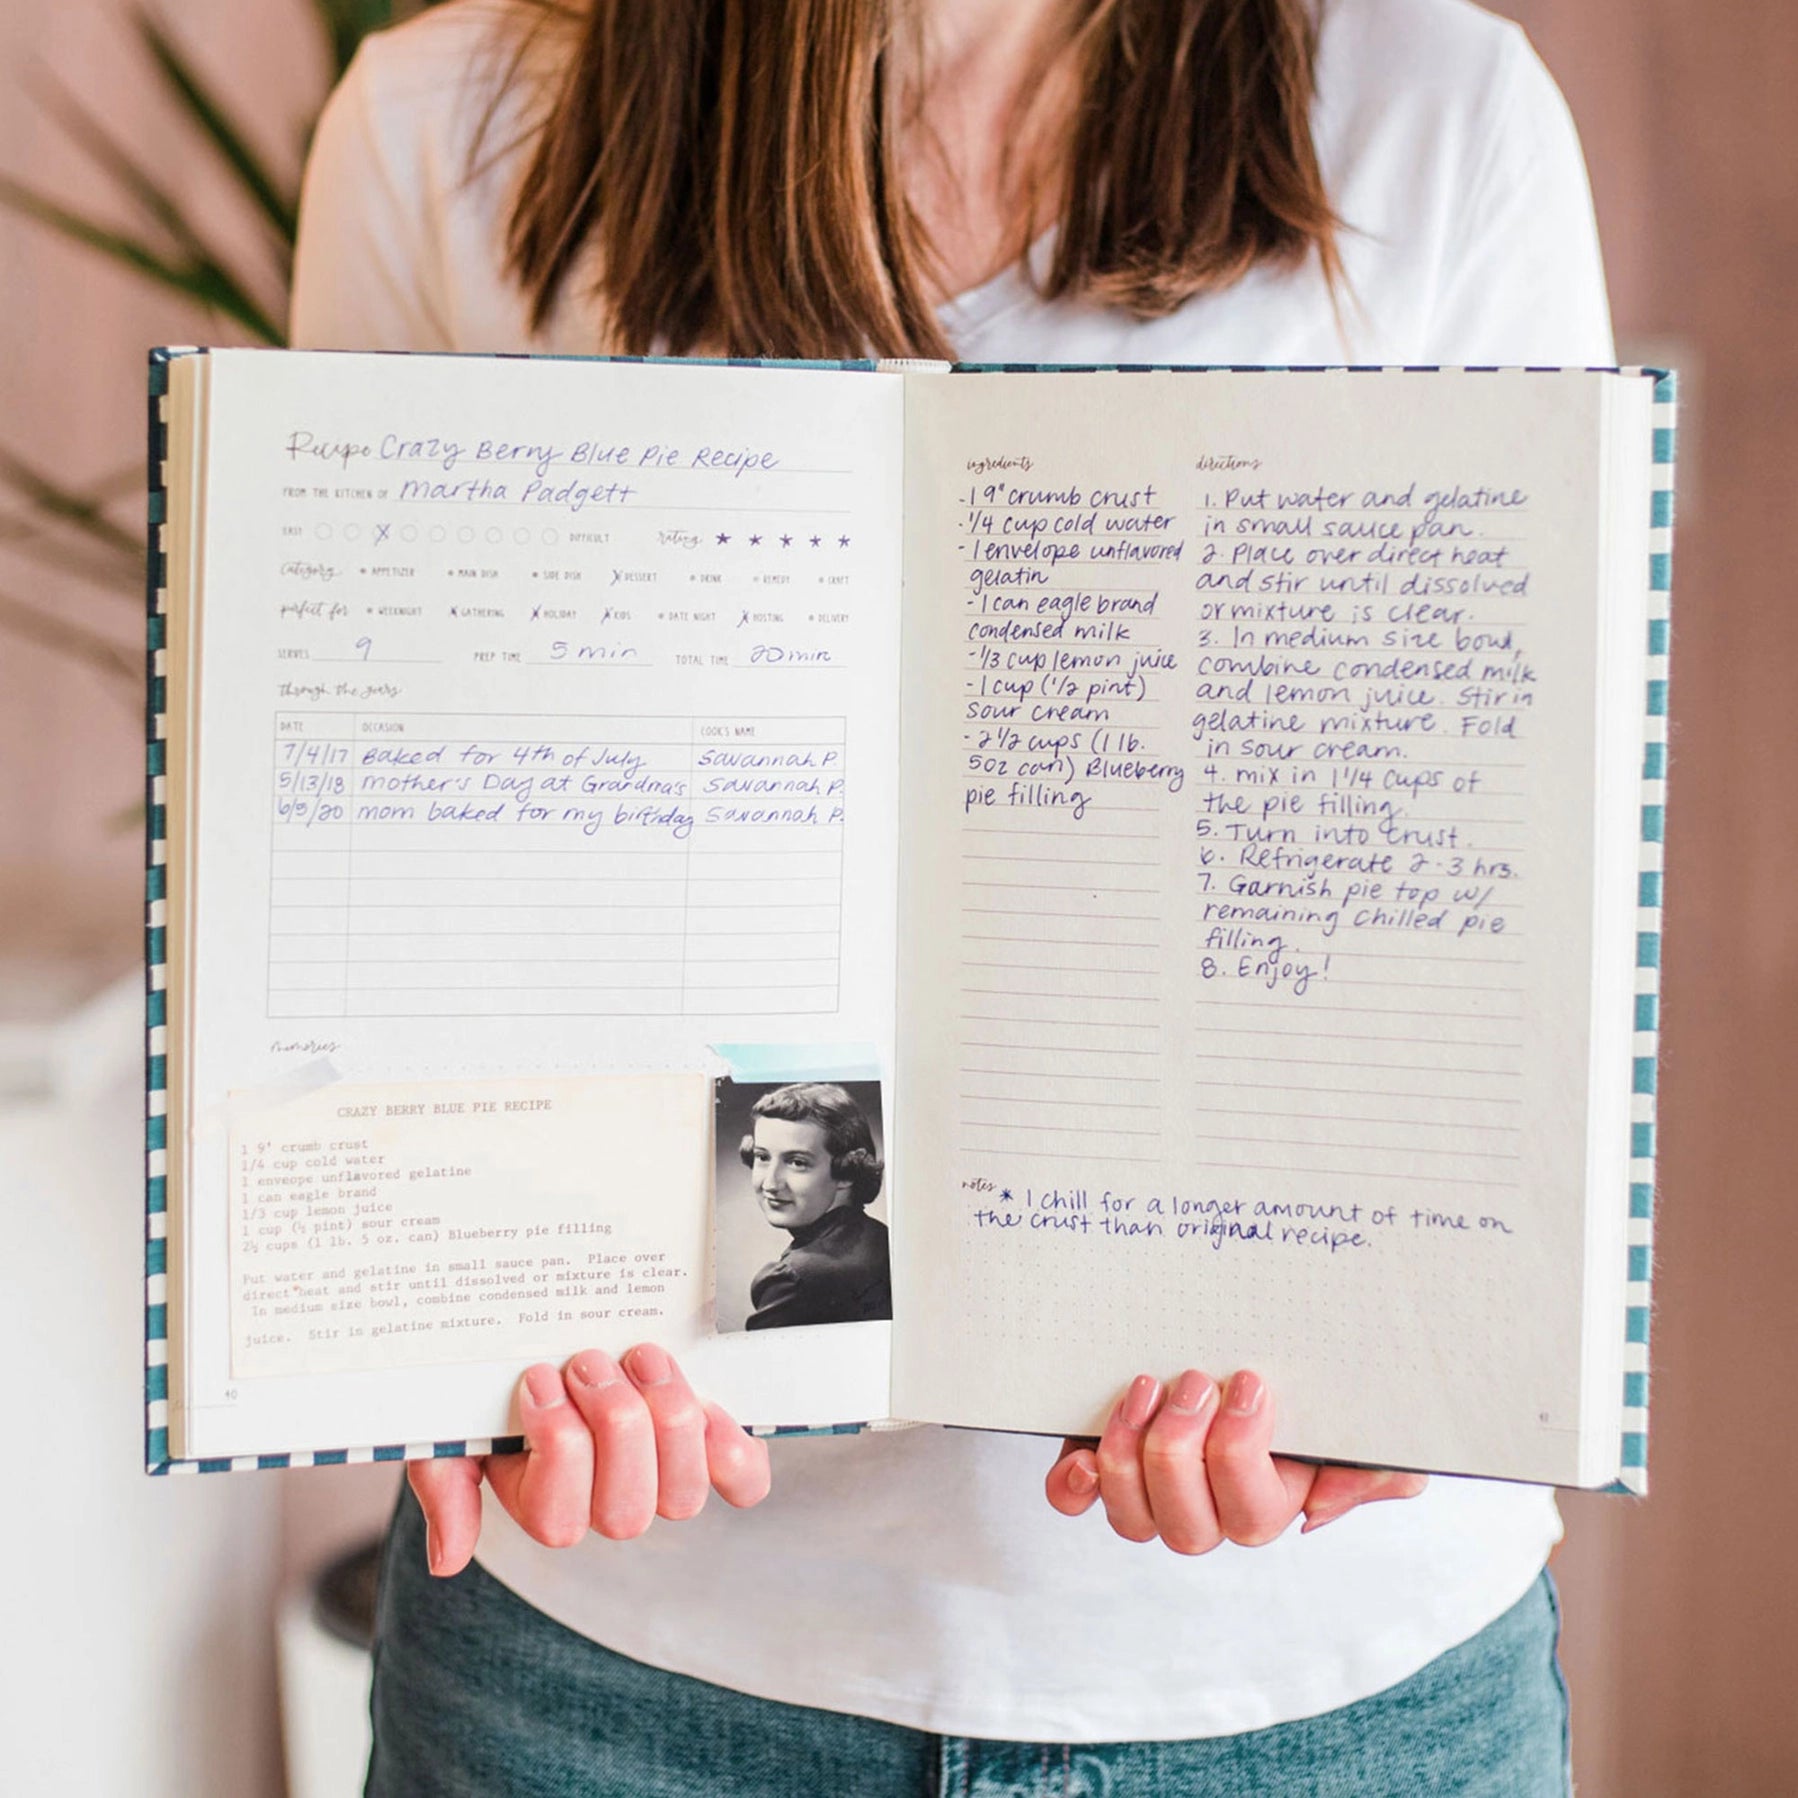 Recipe Crazy Berry Blue Pie Recipe
FROM THE KITCHEN OF Martha Padgett
EASY X DIFFICULT rating ★ ★ ★ ★ ★
category APPETIZER MAIN DISH SIDE DISH X DESSERT DRINK REMEDY CRAFT
perfect for WEEKNIGHT X GATHERING X HOLIDAY X KIDS DATE NIGHT X HOSTING DELIVERY
SERVES 9 PREP TIME 5 min TOTAL TIME 20 min
through the years
DATE OCCASION COOK'S NAME
7/4/17 Baked for 4th of July Savannah P.
5/13/18 Mother's Day at Grandma's Savannah P.
6/9/20 mom baked for my birthday Savannah P.
memories
CRAZY BERRY BLUE PIE RECIPE
1 9" crumb crust
1/4 cup cold water
1 enveope unflavored gelatine
1 can eagle brand
1/3 cup lemon juice
1 cup (½ pint) sour cream
2½ cups (1 lb. 5 oz. can) Blueberry pie filling
Put water and gelatine in small sauce pan. Place over
direct heat and stir until dissolved or mixture is clear.
In medium size bowl, combine condensed milk and lemon
juice. Stir in gelatine mixture. Fold in sour cream.
40
ingredients
- 1 9" crumb crust
- 1/4 cup cold water
- 1 envelope unflavored
gelatin
- 1 can eagle brand
condensed milk
- 1/3 cup lemon juice
- 1 cup (1/2 pint)
sour cream
- 2 1/2 cups (1 lb.
5oz can) Blueberry
pie filling
directions
1. Put water and gelatine
in small sauce pan.
2. Place over direct heat
and stir until dissolved
or mixture is clear.
3. In medium size bowl,
combine condensed milk
and lemon juice. Stir in
gelatine mixture. Fold
in sour cream.
4. mix in 1 1/4 cups of
the pie filling.
5. Turn into crust.
6. Refrigerate 2-3 hrs.
7. Garnish pie top w/
remaining chilled pie
filling.
8. Enjoy!
notes * I chill for a longer amount of time on
the crust than original recipe.